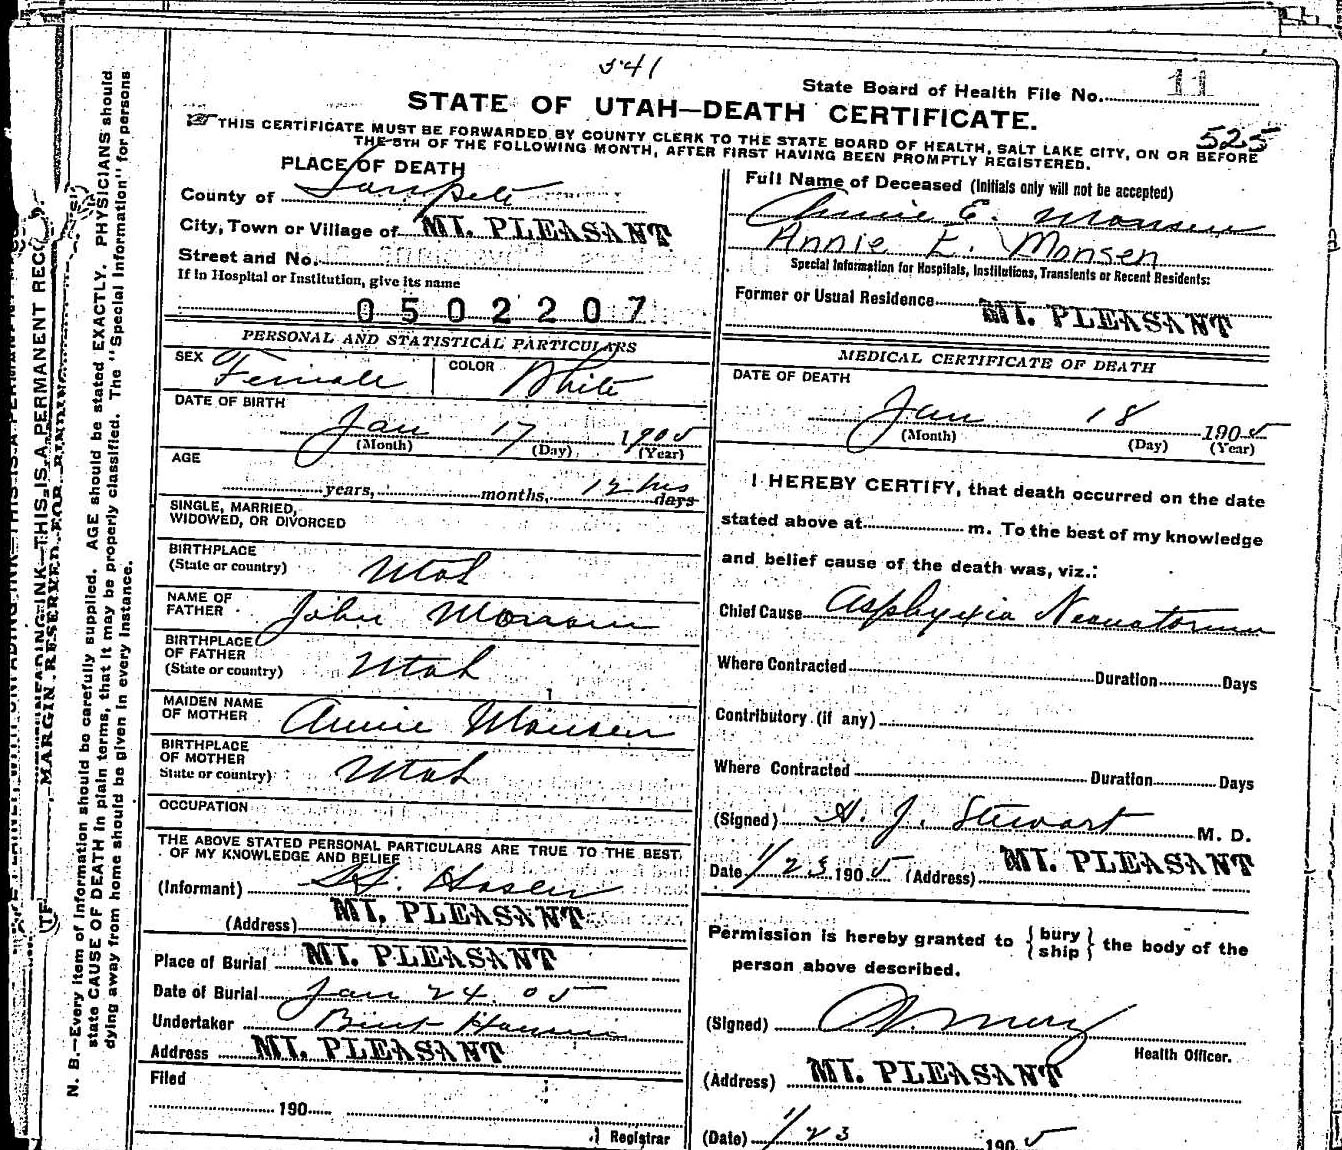 541
State Board of Health File No. 11
STATE OF UTAH—DEATH CERTIFICATE.
525
THIS CERTIFICATE MUST BE FORWARDED BY COUNTY CLERK TO THE STATE BOARD OF HEALTH, SALT LAKE CITY, ON OR BEFORE
THE 5TH OF THE FOLLOWING MONTH, AFTER FIRST HAVING BEEN PROMPTLY REGISTERED.
PLACE OF DEATH
County of Sanpete
City, Town or Village of MT. PLEASANT
Street and No.
If in Hospital or Institution, give its name
0502207
PERSONAL AND STATISTICAL PARTICULARS
SEX Female COLOR White
DATE OF BIRTH
Jan 17 1905
(Month) (Day) (Year)
AGE
years, months, 12 hrs days
SINGLE, MARRIED,
WIDOWED, OR DIVORCED
BIRTHPLACE
(State or country) Utah
NAME OF
FATHER John Monsen
BIRTHPLACE
OF FATHER
(State or country) Utah
MAIDEN NAME
OF MOTHER Annie Monsen
BIRTHPLACE
OF MOTHER
State or country) Utah
OCCUPATION
THE ABOVE STATED PERSONAL PARTICULARS ARE TRUE TO THE BEST
OF MY KNOWLEDGE AND BELIEF
(Informant) Hasen
(Address) MT. PLEASANT
Place of Burial MT. PLEASANT
Date of Burial Jan 24. 05
Undertaker
Address MT. PLEASANT
Filed
190
Registrar
Full Name of Deceased (Initials only will not be accepted)
Annie E. Monsen
Annie E. Monsen
Special Information for Hospitals, Institutions, Transients or Recent Residents:
Former or Usual Residence MT. PLEASANT
MEDICAL CERTIFICATE OF DEATH
DATE OF DEATH
Jan 18 1905
(Month) (Day) (Year)
I HEREBY CERTIFY, that death occurred on the date
stated above at m. To the best of my knowledge
and belief cause of the death was, viz.:
Chief Cause Asphyxia Neonatorum
Where Contracted Duration Days
Contributory (if any)
Where Contracted Duration Days
(Signed) A. J. Stewart M. D.
Date 1/23 1905 (Address) MT. PLEASANT
Permission is hereby granted to { bury ship } the body of the
person above described.
(Signed)
Health Officer.
(Address) MT. PLEASANT
(Date) 1/23 1905
MARGIN RESERVED FOR BINDING
THIS IS A PERMANENT RECORD
N. B.—Every item of information should be carefully supplied. AGE should be stated EXACTLY. PHYSICIANS should
state CAUSE OF DEATH in plain terms, that it may be properly classified. The "Special Information" for persons
dying away from home should be given in every instance.